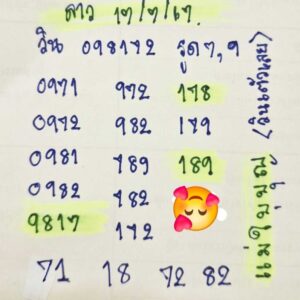 ลาว ๒/๗/๖๗.
วิน 098172 รูด ๗, ๑
0971 972 178
0972 982 179
0981 789 189
0982 782
9817 172
71 18 72 82
(วินตัวเลย)
แม่ใบบุญ